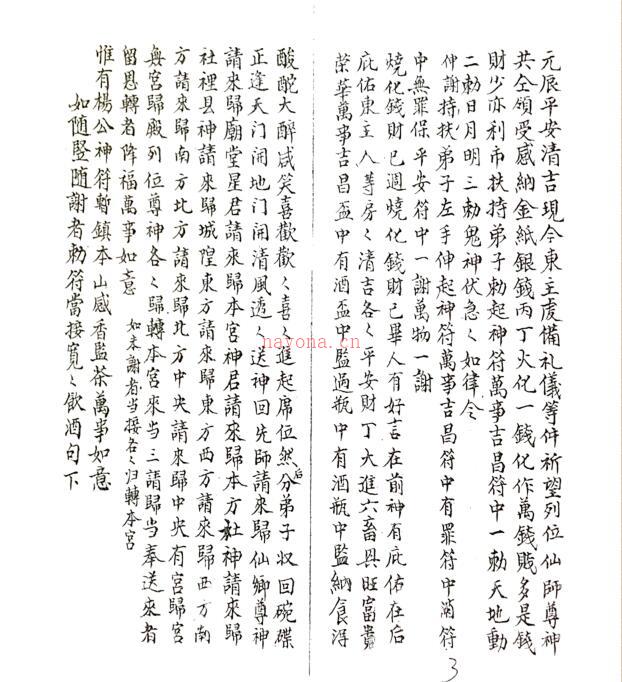 元辰平安清吉現今東主虔備礼儀等件祈望列位仙師尊神
共仝領受感納金紙銀錢丙丁火化一錢化作萬錢貶多是錢
財少亦利市扶持弟子勅起神符萬事吉昌符中一勅天地動
二勅日月明三勅鬼神伏急〻如律令
伸謝持扶弟子左手伸起神符萬事吉昌符中有罪符中消符
中無罪保平安符中一謝萬物一謝
燒化錢財已週燒化錢財已畢人有好言在前神有庇佑在后
庇佑東主人等房〻清吉各〻平安財丁大進六畜興旺富貴
荣華萬事吉昌盃中有酒盃中監過瓶中有酒瓶中監納食淂
酸酡大醉咸笑喜歡歡〻喜〻進起席位然后分弟子收回碗碟
正逢天门開地门開清風透〻送神回先師請來歸仙鄉尊神
請來歸廟堂星君請來歸本宮神君請來歸本方社神請來歸
社裡县神請來歸城隍東方請來歸東方西方請來歸西方南
方請來歸南方北方請來歸北方中央請來歸中央有宮歸宮
無宮歸殿列位尊神各〻歸轉本宮來当三請歸当奉送來者
留恩轉者降福萬事如意
如未謝者当接各〻归轉本宮
惟有楊公神符暫鎮本山感香監茶萬事如意
如随竪随謝者勅符當接寬〻飲酒句下
3
nayona.cn